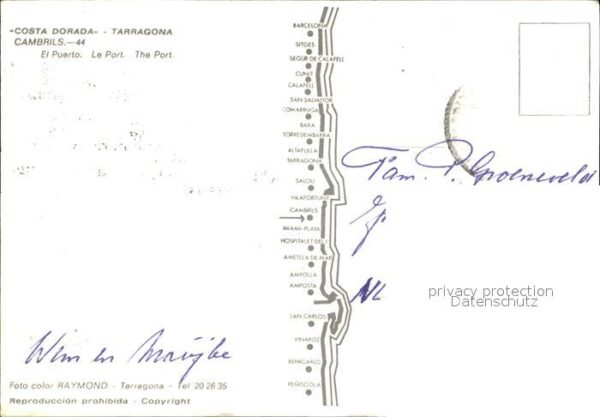 «COSTA DORADA» - TARRAGONA
CAMBRILS.—44
El Puerto. Le Port. The Port.
BARCELONA
SITGES
SEGUR DE CALAFELL
CUNIT
CALAFELL
SAN SALVADOR
COMARRUGA
BARA
TORREDEMBARRA
ALTAFULLA
TARRAGONA
SALOU
VILAFORTUNY
CAMBRILS
MIAMI-PLAYA
HOSPITALET DEL I.
AMETLLA DE MAR
AMPOLLA
AMPOSTA
SAN CARLOS
VINAROZ
BENICARLO
PEÑISCOLA
Fam. P. Groeneveld
NL
privacy protection
Datenschutz
Wim en
Foto color RAYMOND - Tarragona - Tel 20 26 35
Reproducción prohibida - Copyright